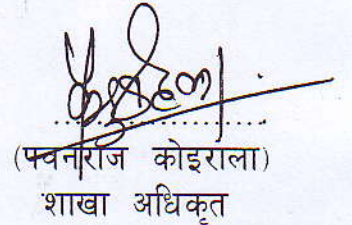 (पवनराज कोइराला)
शाखा अधिकृत